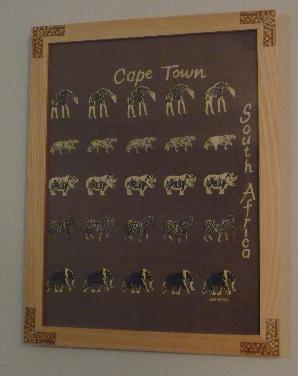 Cape Town
South Africa